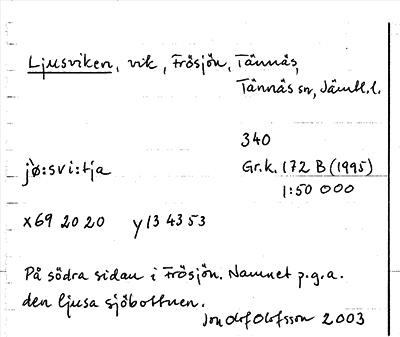 Ljusviken, vik, Frösjön, Tännäs,
Tännäs sn, Jämtl. l.
340
jö̀:svi:tja
Gr.k. 172 B (1995)
1:50 000
x69 20 20 y13 43 53
På södra sidan i Frösjön. Namnet p.g.a.
den ljusa sjöbottnen.
Jon Olof Olofsson 2003